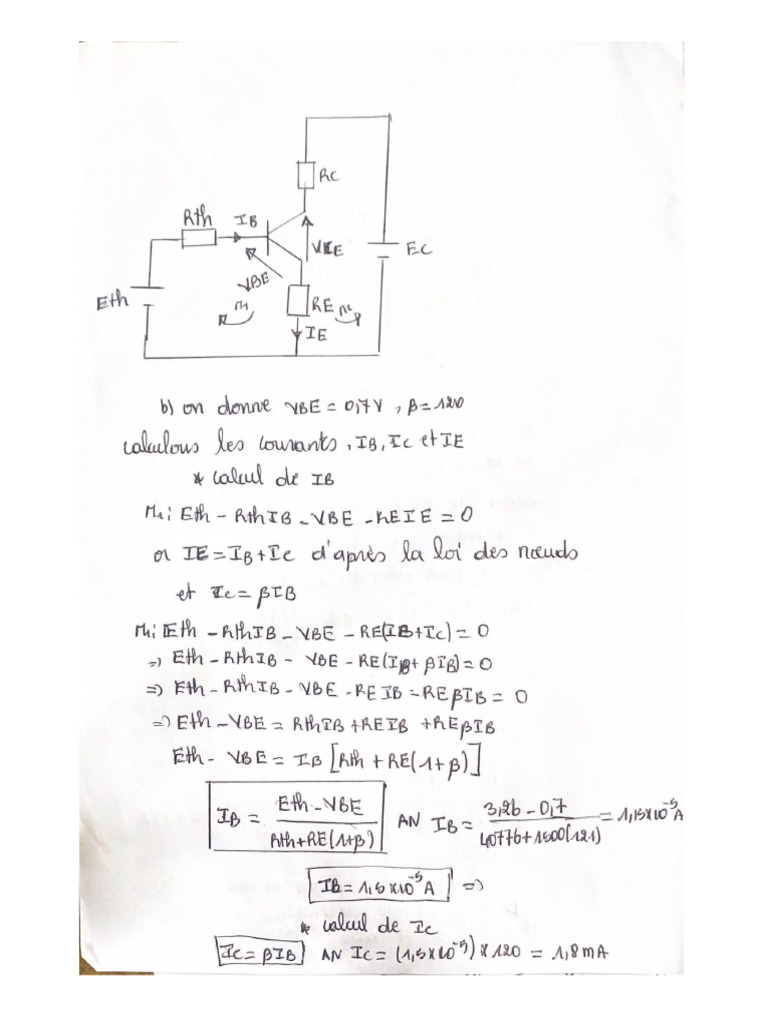 RC
Rth IB
VCE
EC
VBE
Eth
M1
RE
M2
IE
b) on donne VBE = 0,7V , β = 120
calculous les courants , IB, Ic et IE
* calcul de IB
M1: Eth - RthIB - VBE - REIE = 0
or IE = IB + Ic d'après la loi des nœuds
et Ic = βIB
M1: Eth - RthIB - VBE - RE(IB+Ic) = 0
=> Eth - RthIB - VBE - RE(IB + βIB) = 0
=> Eth - RthIB - VBE - REIB - REβIB = 0
=> Eth - VBE = RthIB + REIB + REβIB
Eth - VBE = IB [Rth + RE(1+β)]
IB = Eth - VBE / Rth + RE(1+β) AN IB = 3,26 - 0,7 / 40776 + 1500(121) = 1,15×10⁻⁵A
IB = 1,5×10⁻⁵A =>
* calcul de Ic
Ic = βIB AN Ic = (1,5×10⁻⁵) × 120 = 1,8mA